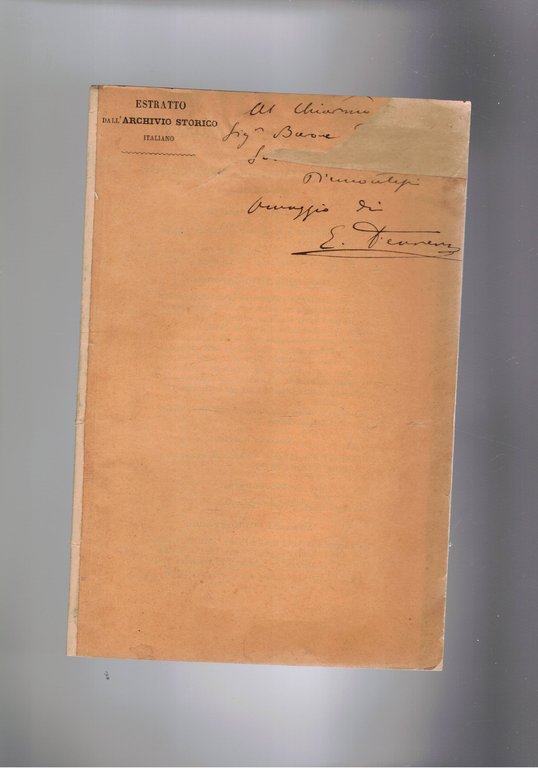 ESTRATTO
DALL'ARCHIVIO STORICO
ITALIANO
Al Chiarmo
Sigr Barone
Piemontesi
Omaggio di
E.